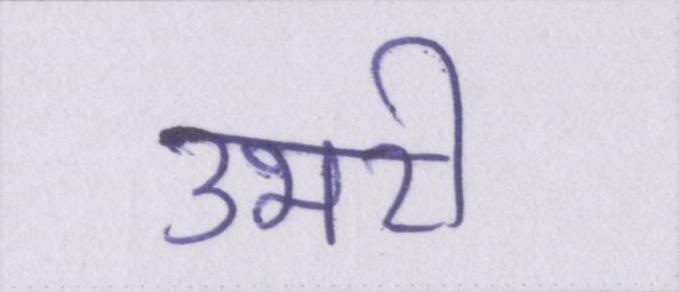 उभरी